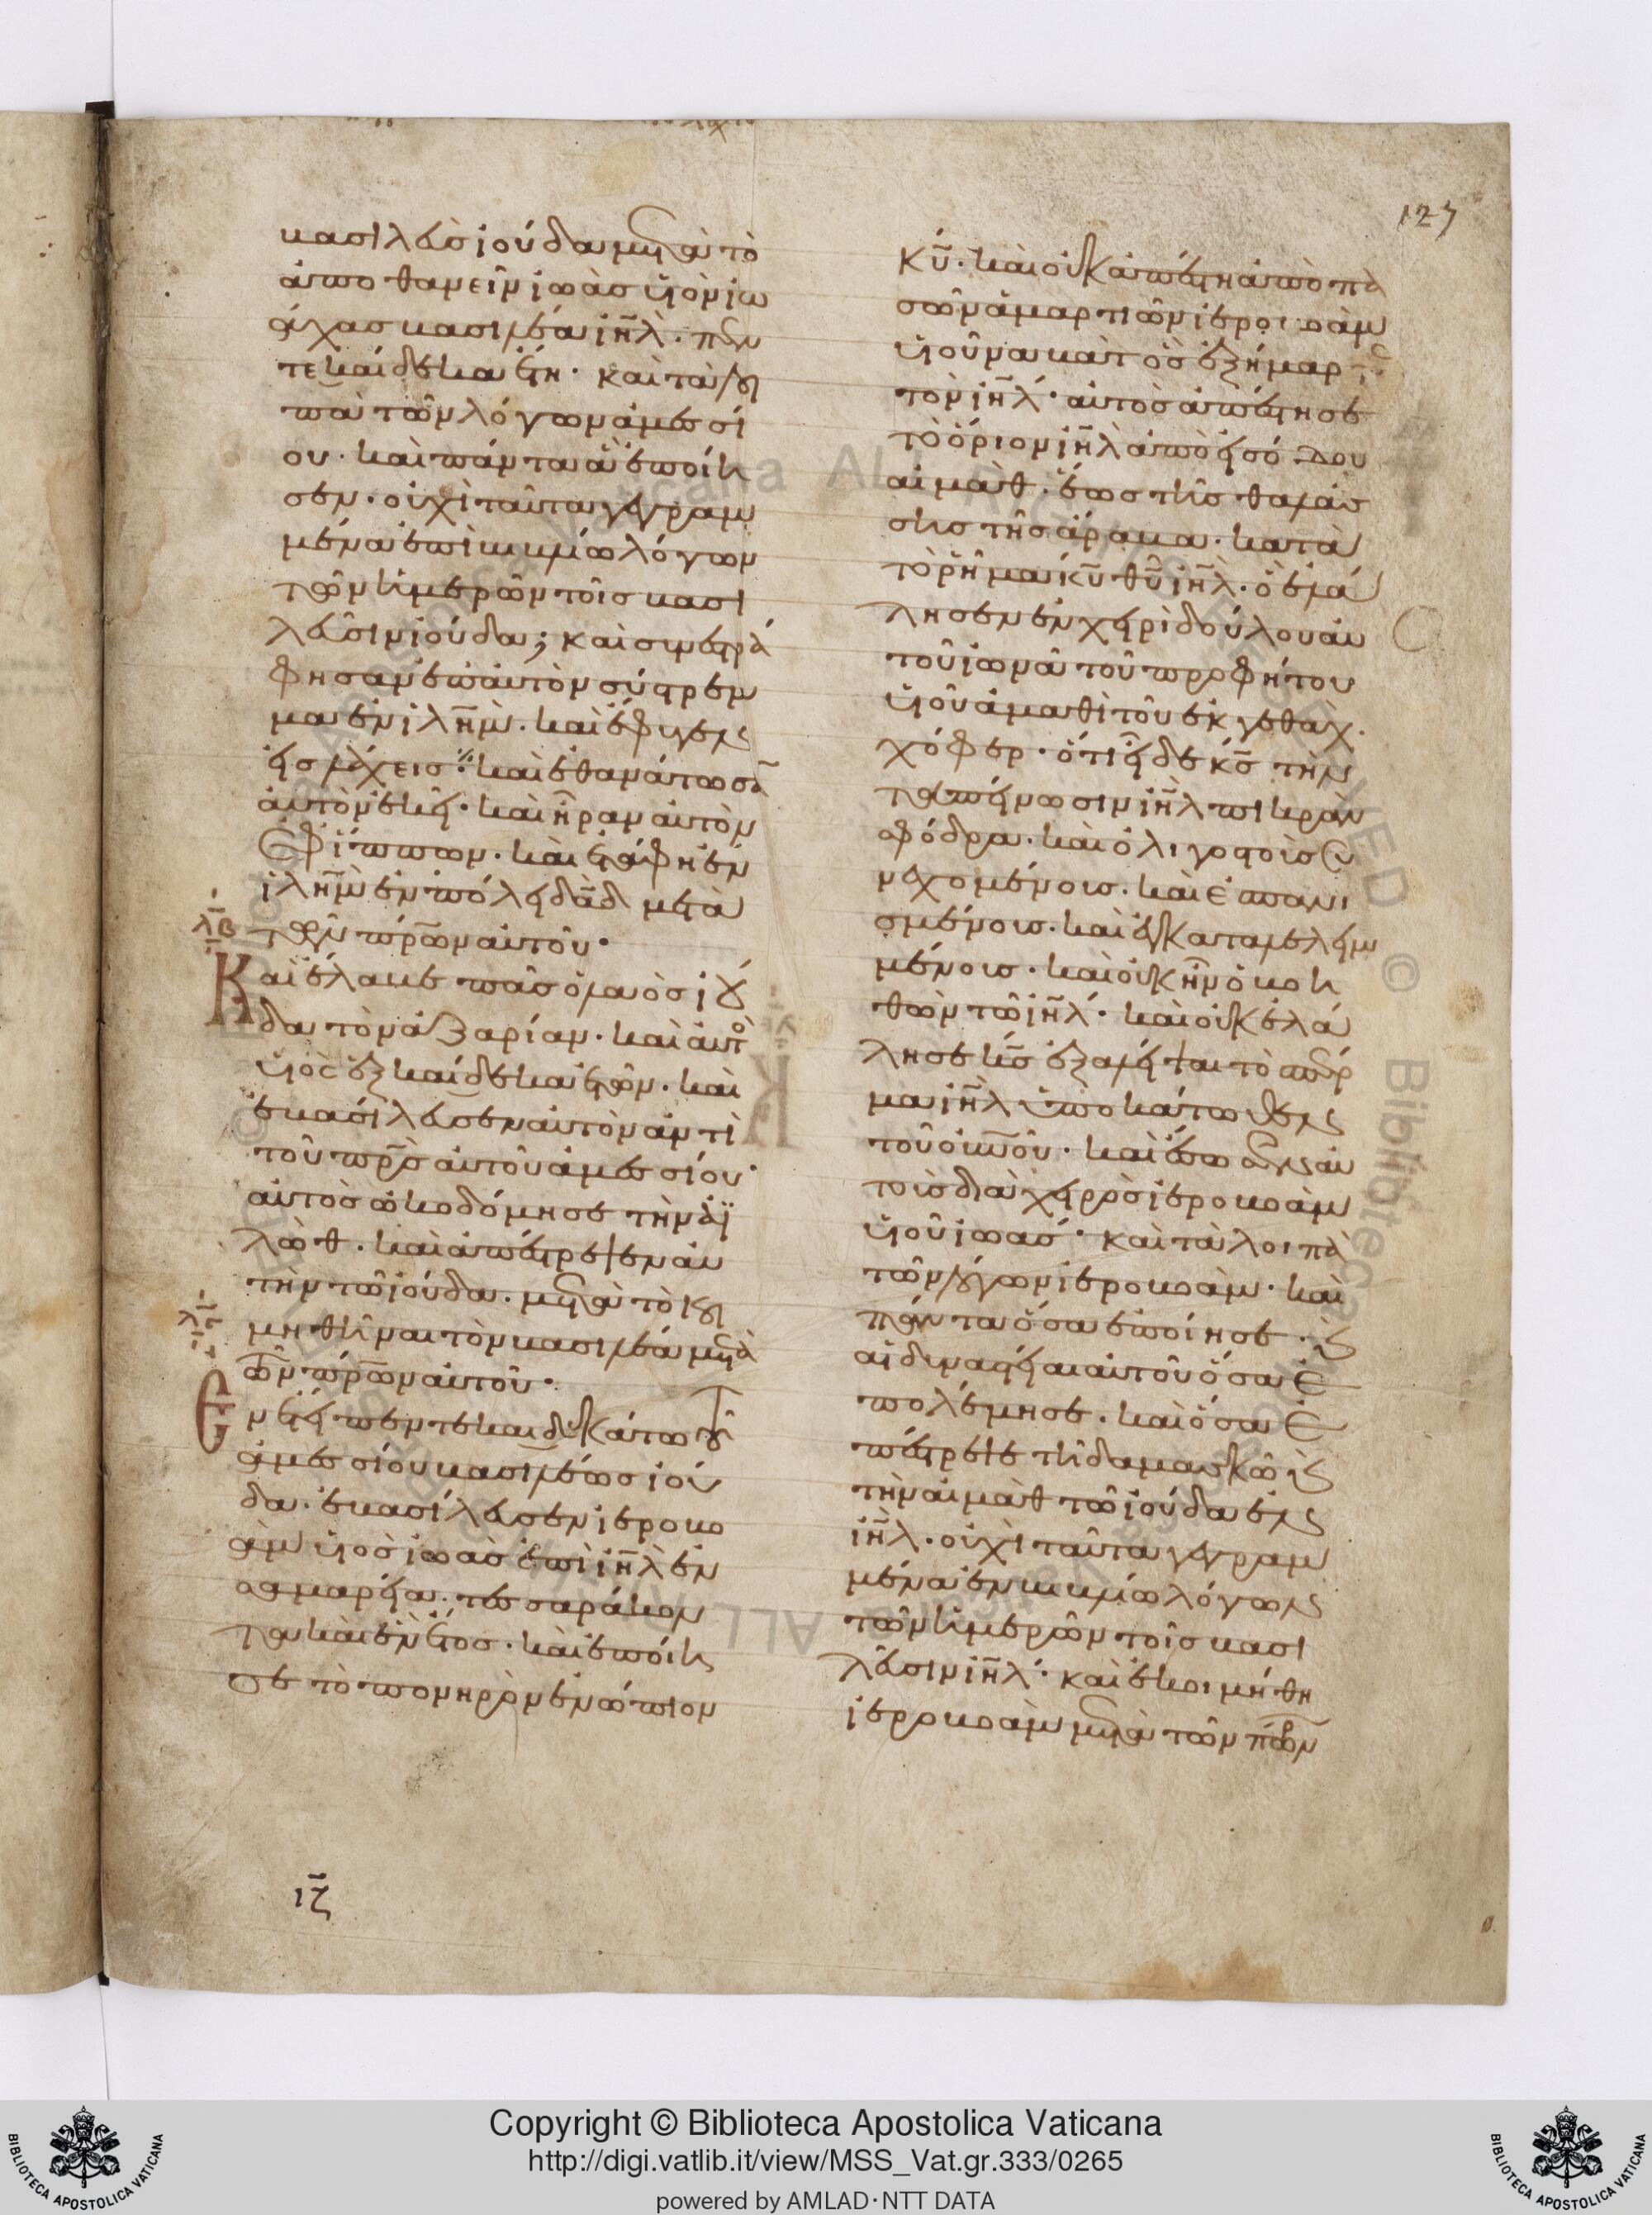 127
βασιλεὺς ἰούδα μετὰ τὸ
ἀποθανεῖν ἰωὰς υἱὸν ἰω
άχας βασιλέα ιη̅λ̀· πεν
τεκαίδεκα ἔτη· καὶ τὰ λοι
πὰ τῶν λόγων ἀμεσί
ου· καὶ πάντα ἃ ἐποίη
σεν· οὐχὶ ταῦτα γεγραμ
μένα ἐπὶ βιβλίω λόγων
τῶν ἡμερῶν τοῖς βασι
λεῦσιν ἰούδα; καὶ συνεστρά
φησαν ἐπ' αὐτὸν σύστρεμ
μα ἐν ιλη̅μ̀· καὶ ἔφυγεν
εἰς λάχεις· καὶ ἐθανάτωσα̅
αὐτὸν ἐκεῖ· καὶ ἦραν αὐτὸν
ἐφ' ἵππων· καὶ ἐτάφη ἐν
ιλη̅μ̀ ἐν πόλει δα̅δ μετὰ
λ̅β̅
τῶν πρ̅ων αὐτοῦ·
Καὶ ἔλαβε πᾶς ὁ λαὸς ἰού
δα τὸν ἀζαρίαν· καὶ αὐτὸ
υἱὸς ἑξκαίδεκα ἐτῶν· καὶ
ἐβασίλευσεν αὐτὸν ἀντὶ
τοῦ πρ̅ς αὐτοῦ ἀμεσίου·
αὐτὸς ὠκοδόμησε τὴν ἀϊ
λὼθ· καὶ ἀπέστρεψεν αὐ
τὴν τῶ ἰούδα· μετὰ τὸ κοι
μηθῆναι τὸν βασιλέα μετὰ
λ̅γ̅
τῶν πρ̅ων αὐτοῦ·
Ἐν ἔτει πεντεκαιδεκάτω τοῦ
ἀμεσίου βασιλέως ἰού
δα· ἐβασίλευσεν ἱεροβο
ὰμ υἱὸς ἰωὰς ἐπὶ ιη̅λ̀ ἐν
σαμαρεία· τεσσαράκον
τα καὶ ἓν ἔτος· καὶ ἐποίη
σε τὸ πονηρὸν ἐνώπιον
ιζ̅
κ̅υ̅· καὶ οὐκ ἀπέστη ἀπὸ πα
σῶν ἁμαρτιῶν ἱεροβοὰμ
υἱοῦ ναβάτ ὃς ἐξήμαρτε
τὸν ιη̅λ́· αὐτὸς ἀπέστησε
τὸ ὅριον ιη̅λ̀ ἀπὸ εἰσόδου
αἰμὰθ· ἕως τῆς θαλάσ
σης τῆς ἄραβα· κατὰ
τὸ ῥῆμα κ̅υ̅ θ̅υ̅ ιη̅λ̀· ὃ ἐλά
λησεν ἐν χειρὶ δούλου αὐ
τοῦ ἰωνᾶ τοῦ προφήτου
υἱοῦ ἀμαθὶ τοῦ ἐκ γεθαχ
χόφερ· ὅτι εἶδε κ̅ς̅ τὴν
ταπείνωσιν ιη̅λ πικρὰν
σφόδρα· καὶ ὀλιγοστοὺς συ
νεχομένους· καὶ ἐσπανι
σμένους· καὶ ἐγκαταλελειμ
μένους· καὶ οὐκ ἦν ὁ βοη
θῶν τῶ ιη̅λ́· καὶ οὐκ ἐλά
λησε κ̅ς̅ ἐξαλεῖψαι τὸ σπέρ
μα ιη̅λ̀ ὑποκάτωθεν
τοῦ οὐ̅νοῦ· καὶ ἔσωσεν αὐ
τοὺς διὰ χειρὸς ἱεροβοὰμ
υἱοῦ ἰωάς· καὶ τὰ λοιπὰ
τῶν λόγων ἱεροβοὰμ· καὶ
πάντα ὅσα ἐποίησε· καὶ
αἱ δυναστεῖαι αὐτοῦ ὅσα ἐ
πολέμησε· καὶ ὅσα ἐ
πέστρεψε τῆ δαμασκῶ καὶ
τὴν αἰμὰθ τῶ ἰούδα ἐν
ιη̅λ· οὐχὶ ταῦτα γεγραμ
μένα ἐν βιβλίω λόγων
τῶν ἡμερῶν τοῖς βασι
λεῦσιν ιη̅λ́· καὶ ἐκοιμήθη
ἱεροβοὰμ μετὰ τῶν πρ̅ων
Copyright © Biblioteca Apostolica Vaticana
http://digi.vatlib.it/view/MSS_Vat.gr.333/0265
powered by AMLAD·NTT DATA
BIBLIOTECA APOSTOLICA VATICANA
BIBLIOTECA APOSTOLICA VATICANA